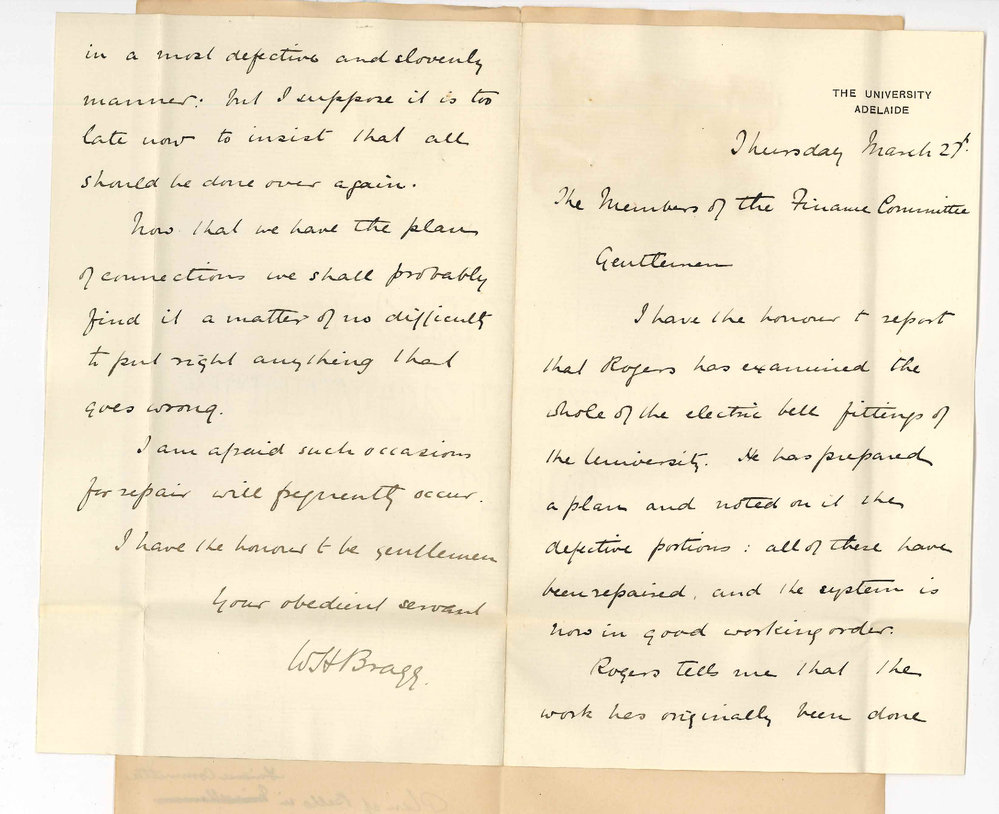 THE UNIVERSITY
ADELAIDE
Thursday March 27th
The Members of the Finance Committee
Gentlemen
I have the honour to report
that Rogers has examined the
whole of the electric bell fittings of
the University. He has prepared
a plan and noted on it the
defective portions: all of these have
been repaired, and the system is
now in good working order.
Rogers tells me that the
work has originally been done
in a most defective and slovenly
manner: but I suppose it is too
late now to insist that all
should be done over again.
Now that we have the plan
of connections we shall probably
find it a matter of no difficulty
to put right anything that
goes wrong.
I am afraid such occasions
for repair will frequently occur.
I have the honour to be gentlemen
Your obedient servant
WHBragg.